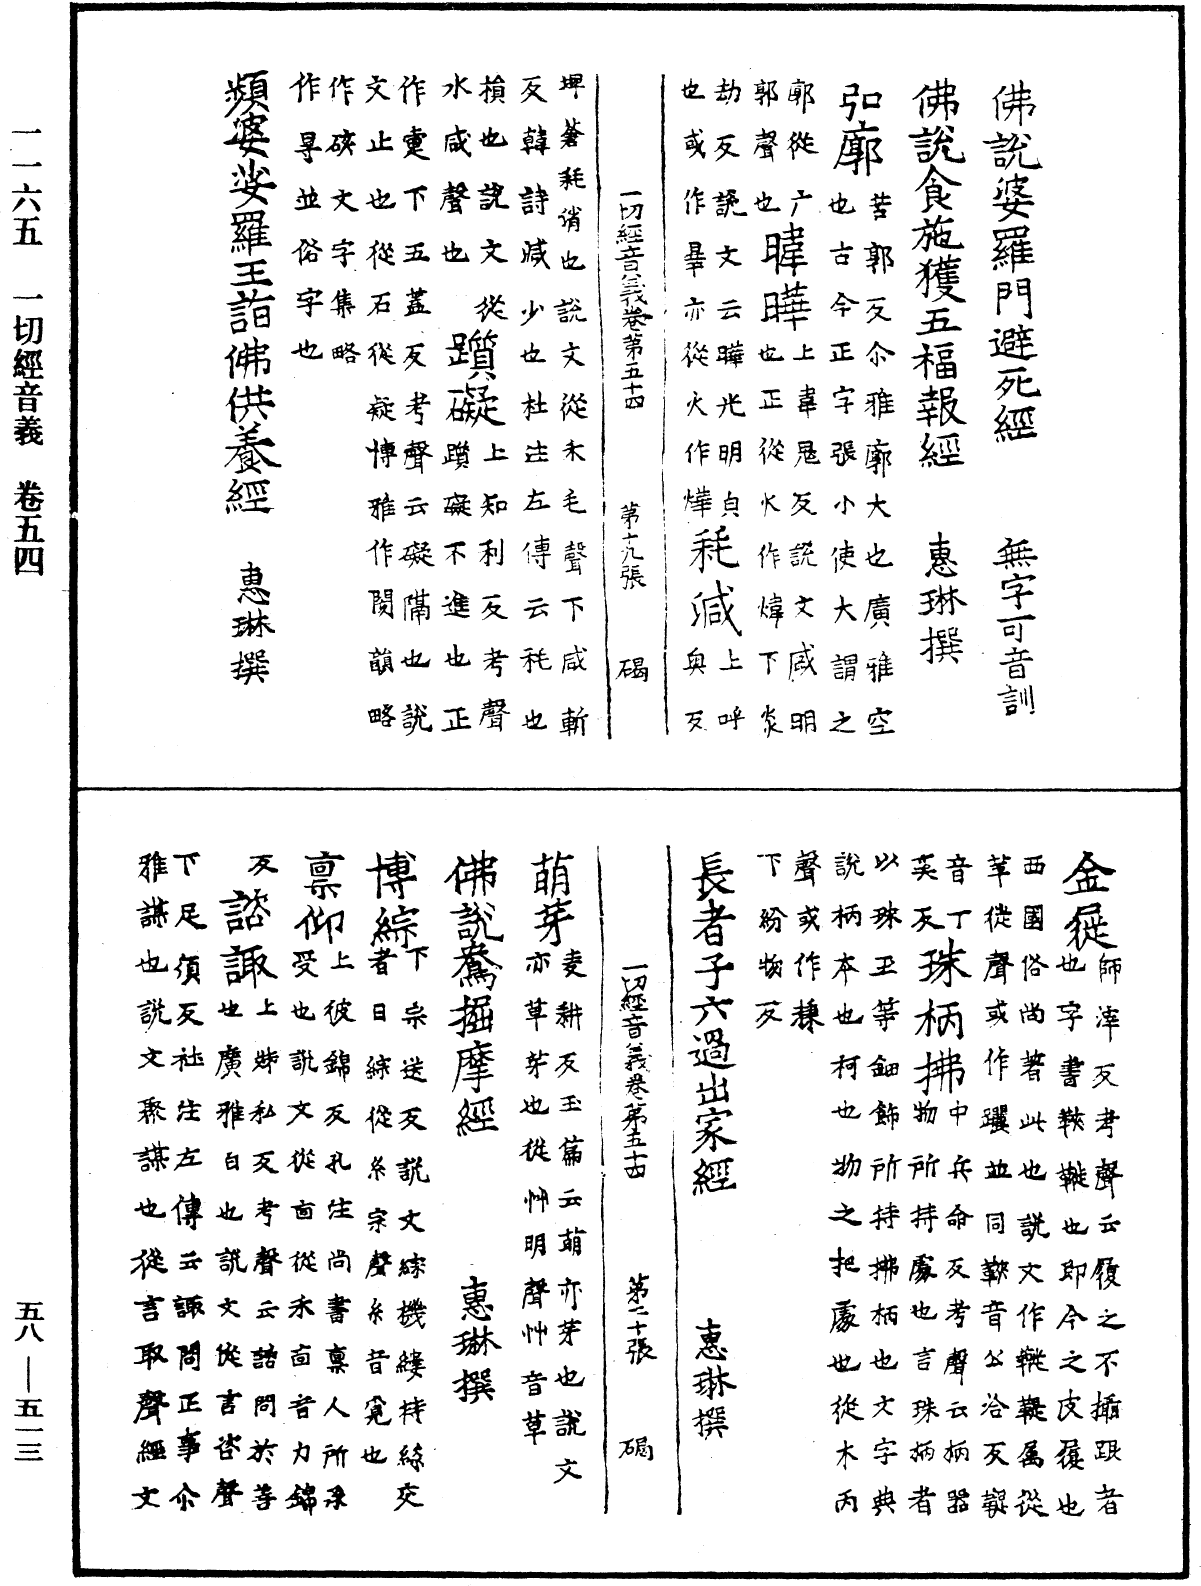 佛說婆羅門避死經　無字可音訓
佛說食施獲五福報經　惠琳撰
弘廓苦郭反尒雅廓大也廣雅空
也古今正字張小使大謂之
郭從广
郭聲也暐曄上韋鬼反說文咸明
也正從火作煒下炎
劫反說文云曄光明皃耗減上呼
也或作曅亦從火作燁奥反
一切經音義卷第五十四　第十九張　碣
埤蒼耗消也說文從禾毛聲下咸斬
反韓詩減少也杜注左傳云耗也
損也說文從
水咸聲也躓礙上知利反考聲
躓礙不進也正
作疐下五蓋反考聲云礙隔也說
文止也從石從疑博雅作閡韻略
作硋文字集略
作㝵並俗字也
頻婆娑羅王詣佛供養經　惠琳撰
金屣師滓反考聲云履之不攝跟者
也字書鞅鞿也即今之皮履也
西國俗尚著此也說文作鞿鞮属從
革徙聲或作躧並同鞅音公洽反鞮
音丁
英反珠柄拂中兵命反考聲云柄器
物所持處也言珠柄者
以珠玉等鈿飾所持拂柄也文字典
說柄本也柯也物之把處也從木丙
聲或作棅
下紛物反
長者子六過出家經　惠琳撰
一切經音義卷第五十四　第二十張　碣
萌芽麦耕反玉篇云萌亦芽也說文
亦草芽也從艸明聲艸音草
佛說鴦掘摩經　惠琳撰
博綜下宗送反說文綜機縷持絲交
者曰綜從糸宗聲糸音覓也
禀仰上彼錦反孔注尚書禀人所系
受也說文從㐭從禾㐭音力錦
反諮諏上姊私反考聲云諮問於善
也廣雅白也說文從言咨聲
下足須反社注左傳云諏問正事尒
雅謀也說文聚謀也從言取聲經文
一一六五　一切經音義　卷五四
五八—五一三